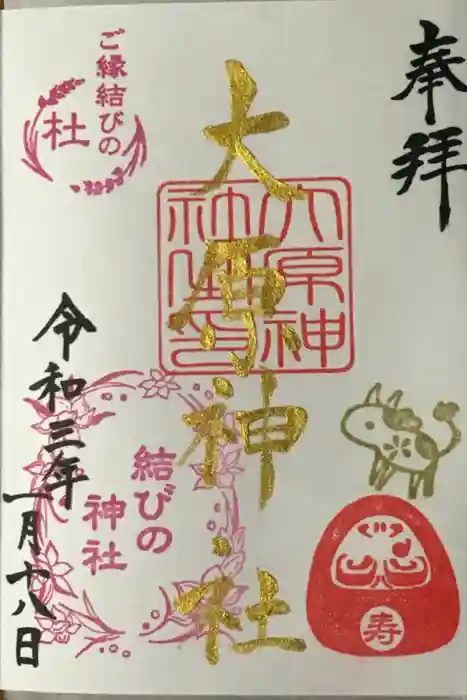 奉拝
大原神社
大原神社御印
ご縁結びの
杜
結びの
神社
令和三年
一月十八日
寿